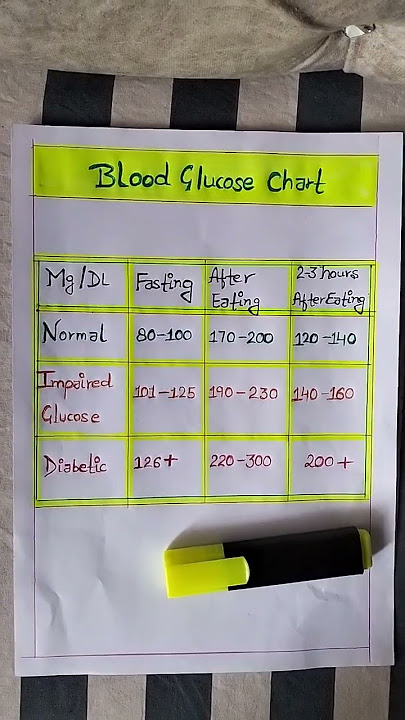 Blood Glucose Chart
Mg/DL Fasting After Eating 2-3 hours After Eating
Normal 80-100 170-200 120-140
Impaired Glucose 101-125 190-230 140-160
Diabetic 126+ 220-300 200+